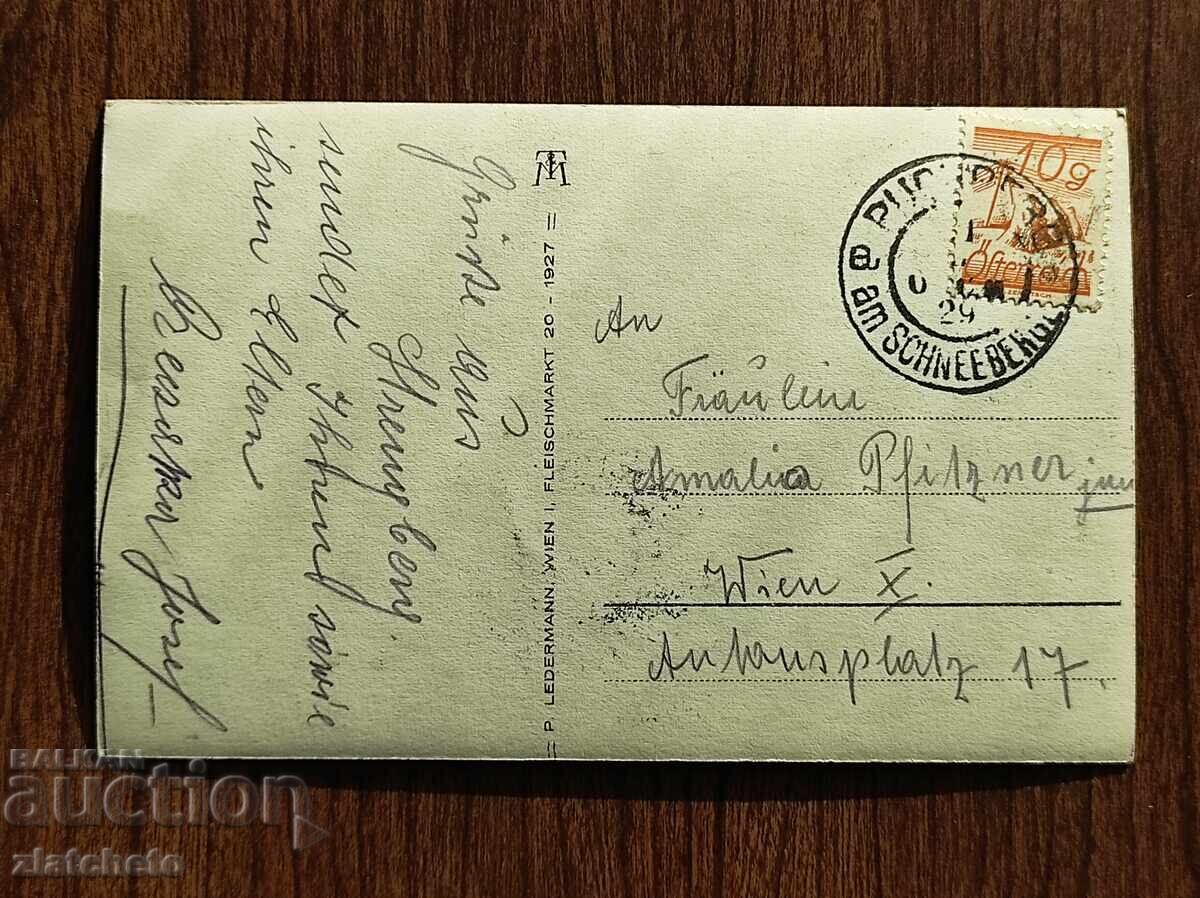 Grüße aus
Strengberg.
sendet Ihnen sowie
ihren Eltern
Josef
P. LEDERMANN, WIEN I, FLEISCHMARKT 20 - 1927
10g
a am SCHNEEBERGE
29
An
Fräulein
Amalia Pfitzner jun
Wien X.
Antonsplatz 17.
BALKAN
auction
zlatcheto